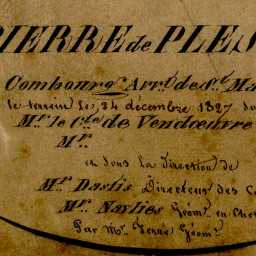 PIERRE de PLES
Combourg Arr.t de S.t Ma
le terrein le 24 décembre 1827 so
M.r le C.te de Vendœuvre
M.r
et sous la Direction de
M.r Daslis Directeur des Co
M.r Naylies Géom. en Chef
Par M.r Géom.